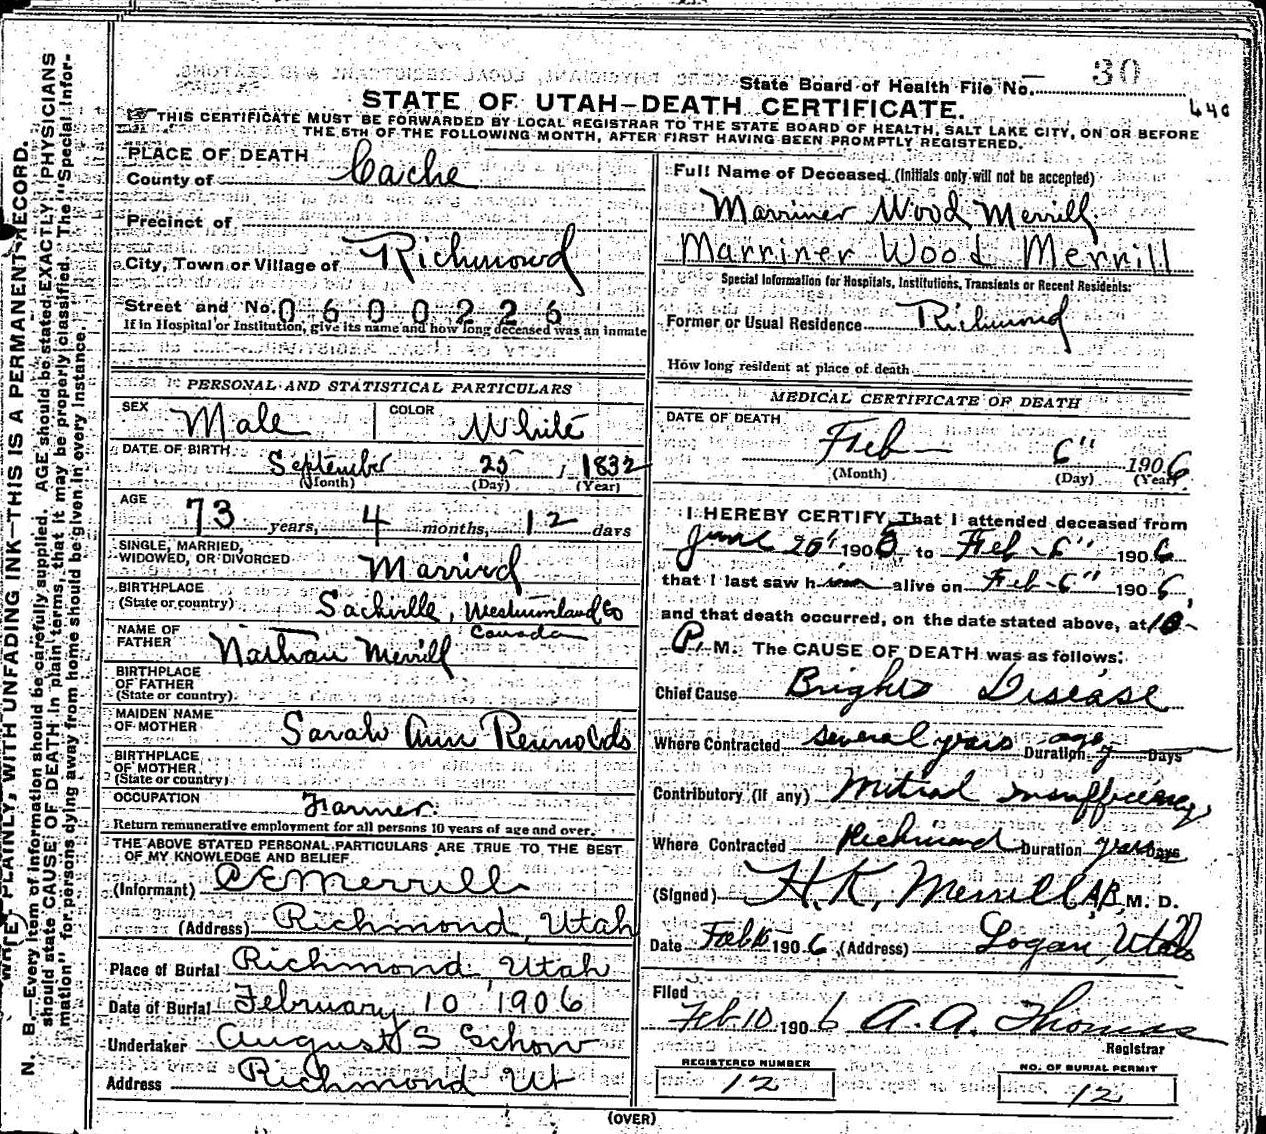 State Board of Health File No. 30
640
STATE OF UTAH—DEATH CERTIFICATE.
THIS CERTIFICATE MUST BE FORWARDED BY LOCAL REGISTRAR TO THE STATE BOARD OF HEALTH, SALT LAKE CITY, ON OR BEFORE
THE 5TH OF THE FOLLOWING MONTH, AFTER FIRST HAVING BEEN PROMPTLY REGISTERED.
PLACE OF DEATH
County of Cache
Precinct of
City, Town or Village of Richmond
Street and No. 0600226
If in Hospital or Institution, give its name and how long deceased was an inmate
PERSONAL AND STATISTICAL PARTICULARS
SEX Male COLOR White
DATE OF BIRTH September 25, 1832
(Month) (Day) (Year)
AGE 73 years, 4 months, 12 days
SINGLE, MARRIED,
WIDOWED, OR DIVORCED Married
BIRTHPLACE
(State or country) Sackville, Westmorland Co
Canada
NAME OF
FATHER Nathan Merrill
BIRTHPLACE
OF FATHER
(State or country)
MAIDEN NAME
OF MOTHER Sarah Ann Reynolds
BIRTHPLACE
OF MOTHER
(State or country)
OCCUPATION Farmer.
Return remunerative employment for all persons 10 years of age and over.
THE ABOVE STATED PERSONAL PARTICULARS ARE TRUE TO THE BEST
OF MY KNOWLEDGE AND BELIEF
(Informant) Merrill
(Address) Richmond, Utah
Place of Burial Richmond, Utah
Date of Burial February 10 1906
Undertaker August S Schow
Address Richmond Ut
Full Name of Deceased (Initials only will not be accepted)
Marriner Wood Merrill.
Marriner Wood Merrill
Special Information for Hospitals, Institutions, Transients or Recent Residents:
Former or Usual Residence Richmond
How long resident at place of death
MEDICAL CERTIFICATE OF DEATH
DATE OF DEATH
Feb 6" 1906
(Month) (Day) (Year)
I HEREBY CERTIFY, That I attended deceased from
June 1905 to Feb-6" 1906
that I last saw him alive on Feb-6" 1906,
and that death occurred, on the date stated above, at 10-
P. M. The CAUSE OF DEATH was as follows:
Chief Cause Brights Disease
Where Contracted several years ago Duration Days
Contributory (If any) Mitral Insufficiency
Where Contracted Richmond Duration years Days
(Signed) H. K. Merrill AB, M. D.
Date 1906, (Address) Logan, Utah
Filed
Feb. 10 1906 A. A. Thomas
Registrar
REGISTERED NUMBER
12
NO. OF BURIAL PERMIT
12
(OVER)
WRITE PLAINLY, WITH UNFADING INK—THIS IS A PERMANENT RECORD.
N. B.—Every item of information should be carefully supplied. AGE should be stated EXACTLY. PHYSICIANS
should state CAUSE OF DEATH in plain terms, that it may be properly classified. The "Special Infor-
mation" for persons dying away from home should be given in every instance.